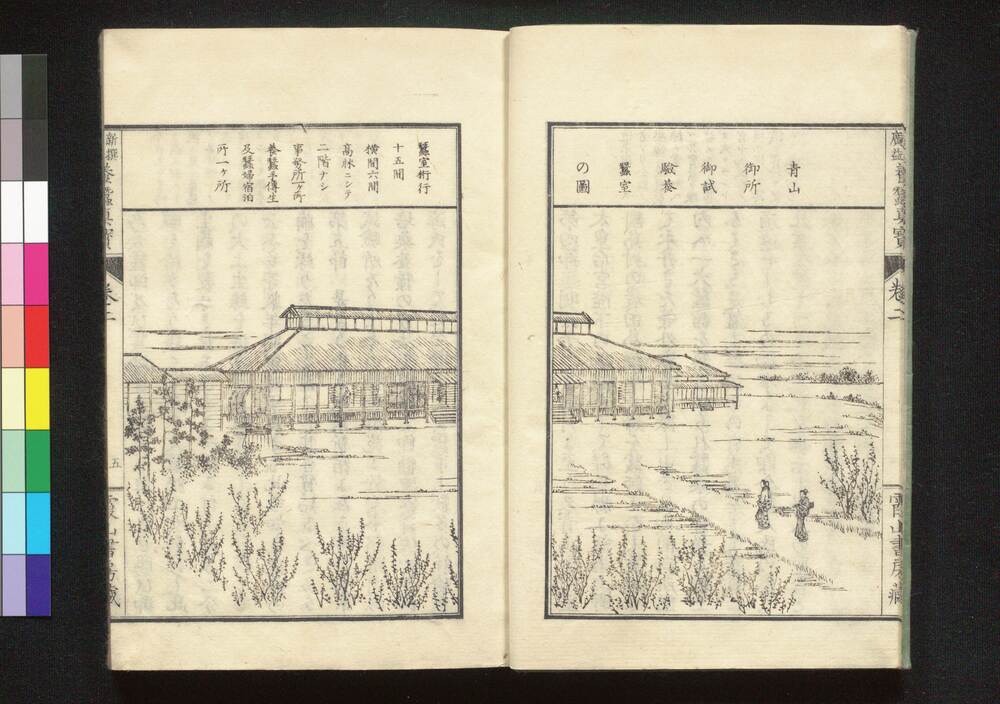 青山
御所
御試
驗養
蠶室
の圖
蠶室桁行
十五間
横間六間
高床ニシテ
二階ナシ
事務所一ヶ所
養蠶手傳生
及蠶婦宿泊
所一ヶ所
卷二
霞山書房藏
新撰養蠶眞寳
卷二
五
霞山書房藏